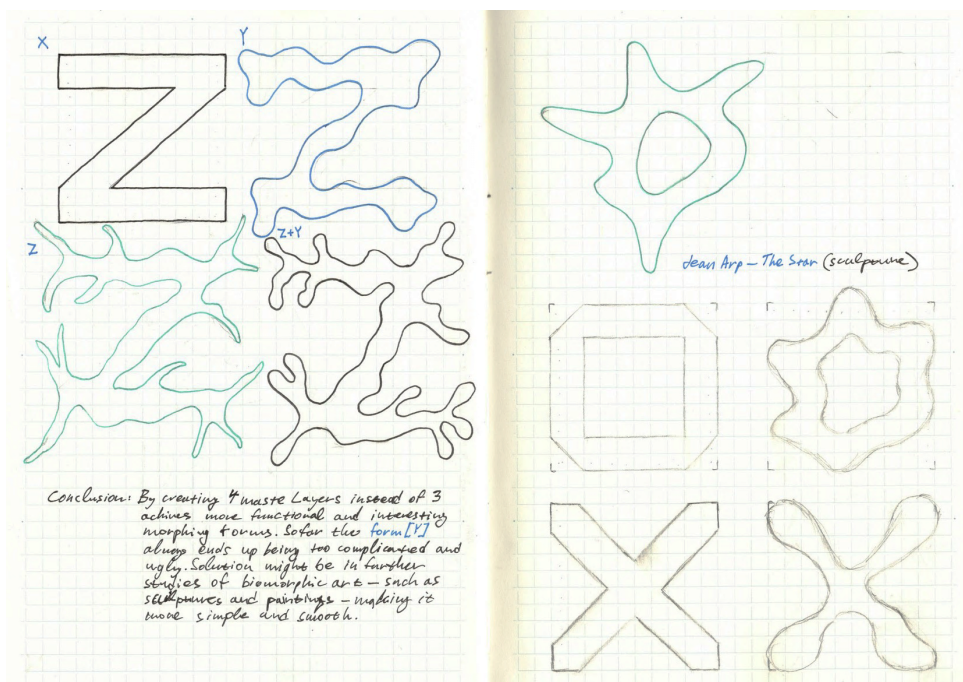 X
Y
Z
Z+Y
Conclusion: By creating 4 maste Layers instead of 3
achives more functional and interesting
morphing forms. Sofar the form[Y]
always ends up being too complicated and
ugly. Solution might be in farther
studies of biomorphic art – such as
sculptures and paintings – making it
more simple and smooth.
Jean Arp – The Star (sculpture)